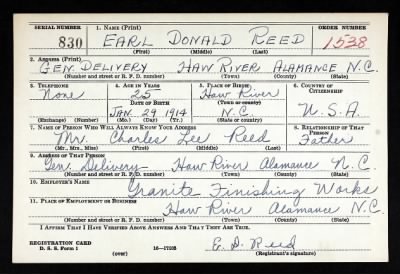 SERIAL NUMBER 1. NAME (Print) ORDER NUMBER
830 EARL DONALD REED 1538
(First) (Middle) (Last)
2. ADDRESS (Print)
GEN. DELIVERY HAW RIVER ALAMANCE N.C.
(Number and street or R. F. D. number) (Town) (County) (State)
3. TELEPHONE 4. AGE IN YEARS 5. PLACE OF BIRTH 6. COUNTRY OF CITIZENSHIP
None 25 Haw River
(Town or county)
DATE OF BIRTH
JAN. 29 1914 N.C. U.S.A.
(Exchange) (Number) (Mo.) (Day) (Yr.) (State or country)
7. NAME OF PERSON WHO WILL ALWAYS KNOW YOUR ADDRESS 8. RELATIONSHIP OF THAT PERSON
Mr. Charles Lee Reed Father
(Mr., Mrs., Miss) (First) (Middle) (Last)
9. ADDRESS OF THAT PERSON
Gen. Delivery Haw River Alamance N.C.
(Number and street or R. F. D. number) (Town) (County) (State)
10. EMPLOYER'S NAME
Granite Finishing Works
11. PLACE OF EMPLOYMENT OR BUSINESS
Haw River Alamance N.C.
(Number and street or R. F. D. number) (Town) (County) (State)
I AFFIRM THAT I HAVE VERIFIED ABOVE ANSWERS AND THAT THEY ARE TRUE.
REGISTRATION CARD
D. S. S. Form 1 16—17105 E. D. Reed
(over) (Registrant's signature)